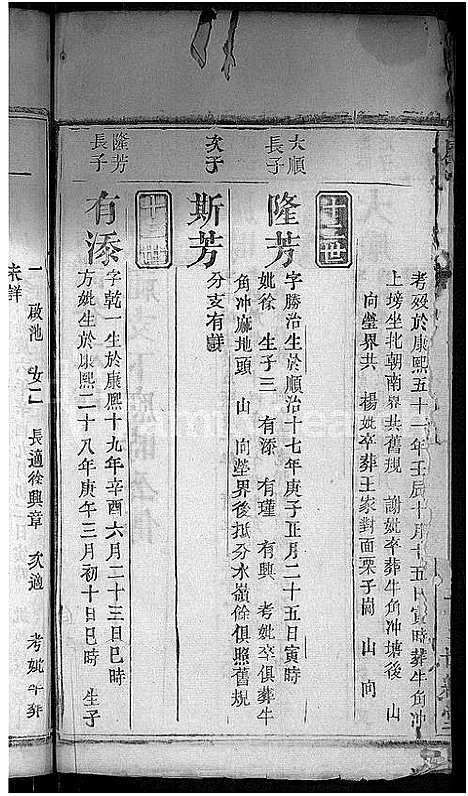 考歿於康熙五十一年壬辰十月十五日寅時葬牛角冲
上塝坐北朝南界共舊規　謝妣卒葬牛角冲塘後　山
向塋界共　楊妣卒葬王家對面栗子崗　山　向
十二世
大順
長子
隆芳
字勝治生於順治十七年庚子正月二十五日寅時
妣徐　生子三　有添　有瑾　有興　考妣卒俱葬牛
角冲麻地頭　山　向塋界後抵分水嶺餘俱照舊規
次子
斯芳
分支有議
十三世
隆芳
長子
有添
字乾一生於康熙十九年辛酉六月二十三日巳時
方妣生於康熙二十八年庚午三月初十日巳時　生子
一　啟池　女二　長適徐興章　次適　考妣卒葬
未詳